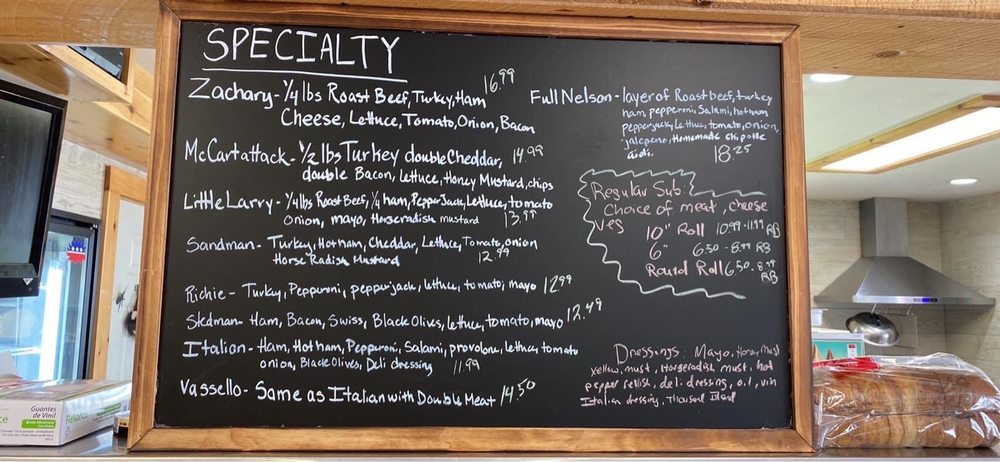 SPECIALTY
Zachary - 1/4 lbs Roast Beef, Turkey, Ham 16.99
Cheese, Lettuce, Tomato, Onion, Bacon
McCartattack - 1/2 lbs Turkey double Cheddar, 14.99
double Bacon, lettuce, Honey Mustard, chips
Little Larry - 1/4 lbs Roast Beef, 1/4 ham, Pepper Jack, Lettuce, tomato
onion, mayo, Horseradish mustard 13.99
Sandman - Turkey, Hot ham, Cheddar, Lettuce, Tomato, onion
Horse Radish Mustard 12.99
Richie - Turkey, Pepperoni, pepperjack, lettuce, tomato, mayo 12.99
Stedman - Ham, Bacon, Swiss, Black Olives, lettuce, tomato, mayo 12.49
Italian - Ham, Hot ham, Pepperoni, Salami, provolone, lettuce, tomato
onion, Black Olives, Deli dressing 11.99
Vassello - Same as Italian with Double Meat 14.50
Full Nelson - layer of Roast beef, turkey
ham, pepperoni, Salami, hot ham
pepperjack, lettuce, tomato, onion,
jalepeno, Homemade chipotle
aioli. 18.25
Regular Sub
Choice of meat, cheese
veg 10" Roll 10.99-11.99 RB
6" 6.50 - 8.99 RB
Round Roll 6.50 - 8.99
RB
Dressings: Mayo, Honey Must
yellow must, Horseradish must, hot
pepper relish, deli dressing, oil, vin
Italian dressing, Thousand Island
Guantes
de Vinil
Reliance